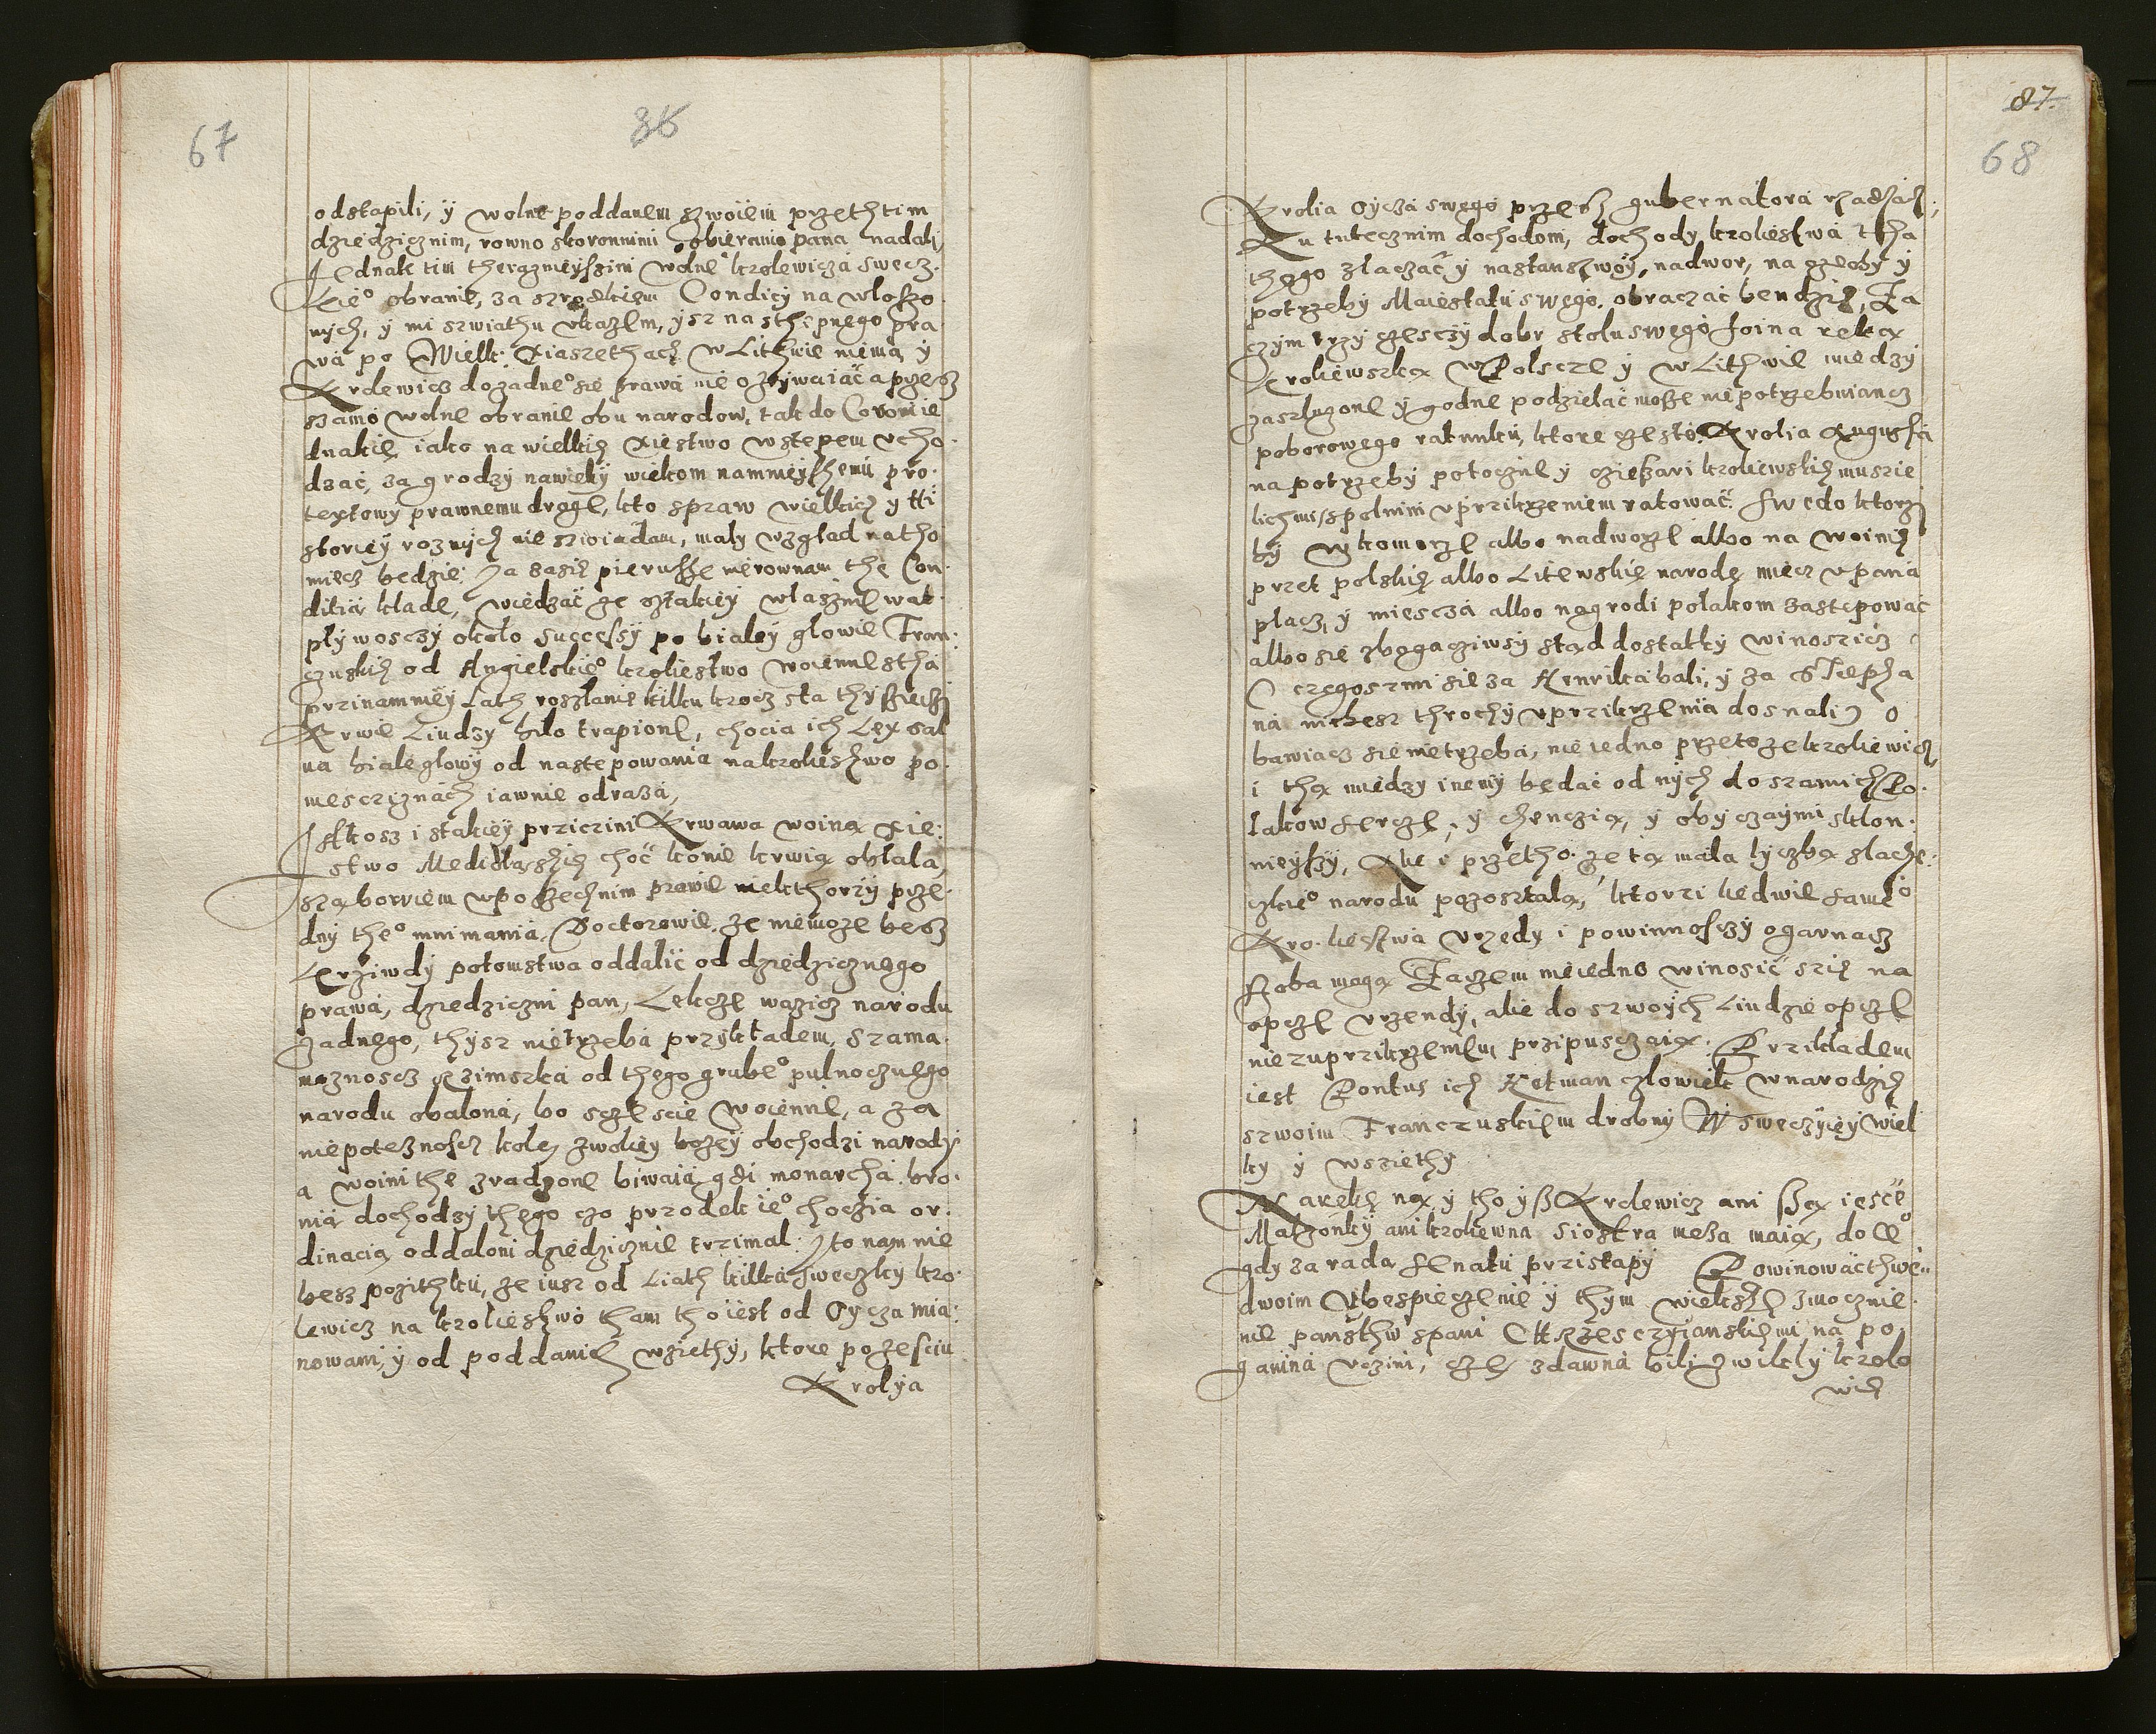 67
86
odstapili, ÿ wolne poddanem szwoiem przethtim
dziedzicznim, rowno skoronnimi obieranie pana nadali,
Jednak tim therazmeyszim wolne krolewicza swecz-
kie° obranie, za szrodkiem Condicÿ na wlozo
nÿch, ÿ mi szwiathu vkazem, ÿsz nasthepnego pra
wa po Wielk: Xiaszethach w Lithwie niema, ÿ
Krolewicz do zadne° sie prawa nie ozÿwaiac a przesz
szamo wolne obranie obu narodow, tak do Coronie
dnakie, iako na wielkie Xiestwo wstepem vcho-
dzac, zagrodzÿ nawiekÿ wiekom nammeyszemu pro-
textowÿ prawnemu droge, kto spraw wielkich ÿ Hi
storieÿ roznÿch nie szwiadom, malÿ wzglad natho
miecz bedzie; Ja zasie pierwsze nierownam the Con-
ditia klade, wiedzac ze sztakieÿ wlaznie wat-
plÿwosczÿ okolo successÿ po bialeÿ glowie Fran-
czuskie od Angielskie° krolestwo woienne stha
przinammeÿ Lath roszlanie kilku krocz sta thÿsieczÿ
Krwie Liudzÿ bilo trapione, chocia ich Lex sal
na bialeglowÿ od nastepowania nakroliestwo po
mesciznach iawnie odraza,
Jakosz i stakieÿ prziczini Krwawa woina Xie-
stwo Mediolanskie choc konie krwia oblala,
sza bowiem wpozechnim prawie niekthorzÿ prze-
dnÿ the° mnimania, Doctorowie, ze niemoze besz
Kerziwdÿ potomstwa oddalic od dziedzicznego
prawa, dziedziczni pan, Lekcze wazicz narodu
zadnego, thÿsz nietrzeba przÿkladem, szama
moznoscz Rzimszka od thego grube° pulnocznego
narodu obalona, bo sczescie woienne, a za
niepoteznoscz kole, zwolieÿ bozeÿ obchodzi narodÿ
a woini the zradzone biwaia, gdi monarcha bro-
nia dochodzÿ thego czo przodek ie° choczia or-
dinacia oddaloni dziedzicznie trzimal: Jto nam nie
besz pozithku, ze iusz od Liath kilka sweczkÿ kro-
lewicz na krolieszwo tham thoiest od Oÿcza mia-
nowani, ÿ od poddanich wziethÿ, ktore po zesciu
Krolÿa
87.
68
Krolia Oÿcza swego przesz gubernatora rzadzacz,
Ku tutecznim dochodom, dochodÿ kroliestwa tha
thego zlaczac ÿ nastanszwoÿ, nadwor, na ozobÿ ÿ
potrzebÿ Maiestatu swego, obraczac bendzie, Za
czÿm trzÿ czesczÿ dobr stolu swego soina reka
Kroliewska w Polscze ÿ w Lithwie miedzÿ
zasluzone ÿ godne podzielac moze nie potrzebuiancz
poborowego ratunku, ktore czesto Krolia Augusta
na potrzebÿ potoczne ÿ ciezari kroliewskie musie
lichmi spolnim vprzikrzeniem ratowac. Swedo ktorz
bÿ w komorze albo nadworze albo na woinie
przet polskie albo Litewskie narode miecz v pana
placz, ÿ miescza albo nagrodi polakom zastepowac
albo sie zbogacziwsÿ stad dostatkÿ winosicz
O czegoszmi sie za Henrika bali, ÿ za Stepha
na niebesz throchÿ vprzikrzenia doznali) o
bawiacz sie nietrzeba, nie iedno przeto ze kroliewicz
i tha miedzÿ inemÿ bedac od nÿch do szamich Po-
lakow sercze, ÿ chenczia, ÿ obÿczaÿmi sklon-
nieÿszÿ, Ale i przetho ze ta mala lÿczba slache-
zkie° narodu pozosztala, ktorzi liedwie same°
Kro-liestwa vrzedÿ i powinnosczÿ ogarnacz
soba moga Zaczem nieiedno winosic szie na
opcze vrzendÿ, ale do szwoÿch Liudzie opcze
niezuprzikrzeniem przipusczaia. Przikladem
iest Pontus ich Hetman czlowiek wnarodzie
szwoim Franczuskiem drobnÿ W sweczÿieÿ wiel
kÿ ÿ wsziethÿ
Nareke na ÿ tho ÿsz Krolewicz ani sza iesce
Malzonkÿ ani kroliewna siostra meza maia, do ce°
gdy za rada senatu przistapÿ Powinowacthwe-
dwoim Vbespieczenie ÿ thÿm wieksze zmocznie-
nie panstw spani CHrzesczÿianskiemi na po-
ganina vczini, cze zdawna bili zwikli krolo
wie